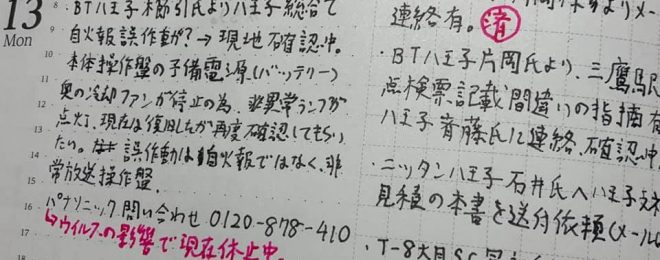 13
Mon
・BT八王子 本郷引氏より八王子総合で
自火報誤作動か?→現地確認中。
本体操作盤の予備電源(バッテリー)
奥の冷却ファンが停止の為、非異常ランプが
点灯、現在は復旧したが再度確認してもらい
たい。誤作動は自火報ではなく、非
常放送操作盤。
パナソニック問い合わせ 0120-878-410
↳ウイルスの影響で現在休止中。
連絡有。済
・BT八王子片岡氏より、三鷹駅
点検票記載間違いの指摘有
八王子斉藤氏に連絡、確認中
・ニッタン八王子石井氏へ八王子
見積の本書を送付依頼(メール
・T-8
8
9
10
11
12
13
14
15
16
17